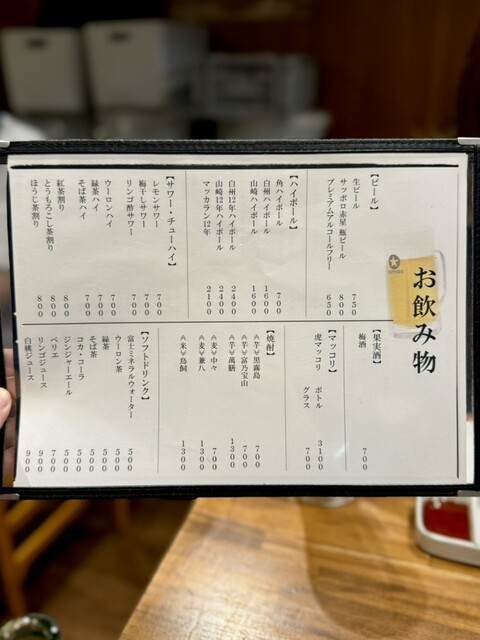 お飲み物
【ビール】
生ビール 750
サッポロ赤星 瓶ビール 800
プレミアムアルコールフリー 650
【ハイボール】
角ハイボール 700
白州ハイボール 1600
山崎ハイボール 1600
白州12年ハイボール 2400
山崎12年ハイボール 2400
マッカラン12年 2100
【サワー・チューハイ】
レモンサワー 700
梅干しサワー 700
リンゴ酢サワー 700
ウーロンハイ 700
緑茶ハイ 700
そば茶ハイ 700
紅茶割り 800
とうもろこし茶割り 800
ほうじ茶割り 800
【果実酒】
梅酒 700
【マッコリ】
虎マッコリ ボトル 3100
グラス 700
【焼酎】
≪芋≫黒霧島 700
≪芋≫富乃宝山 700
≪芋≫萬膳 1300
≪麦≫中々 700
≪麦≫兼八 1300
≪米≫鳥飼 1300
【ソフトドリンク】
富士ミネラルウォーター 500
ウーロン茶 500
緑茶 500
そば茶 500
コカ・コーラ 500
ジンジャーエール 500
ペリエ 700
リンゴジュース 900
白桃ジュース 900